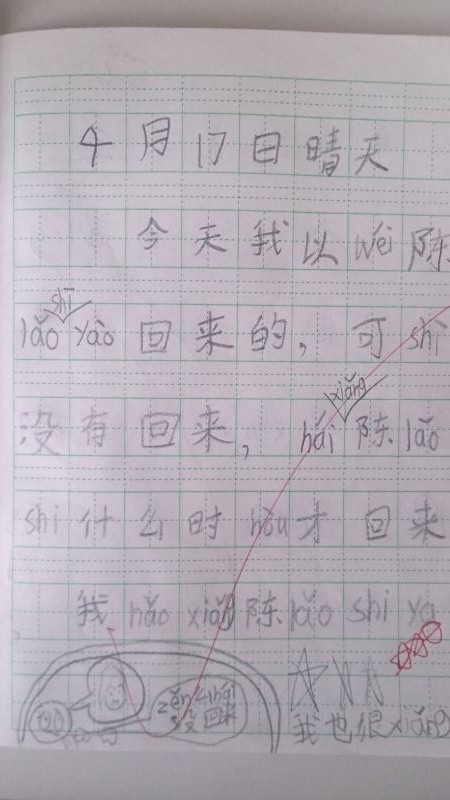 4月17日晴天
今天我以wéi陈
lǎo shī yào回来的，可shì
没有回来，hái xiǎng陈lǎo
shī什么时hòu才回来
我hǎo xiǎng陈lǎo shī ya
zěn me hái
没回来
我也很xiǎng